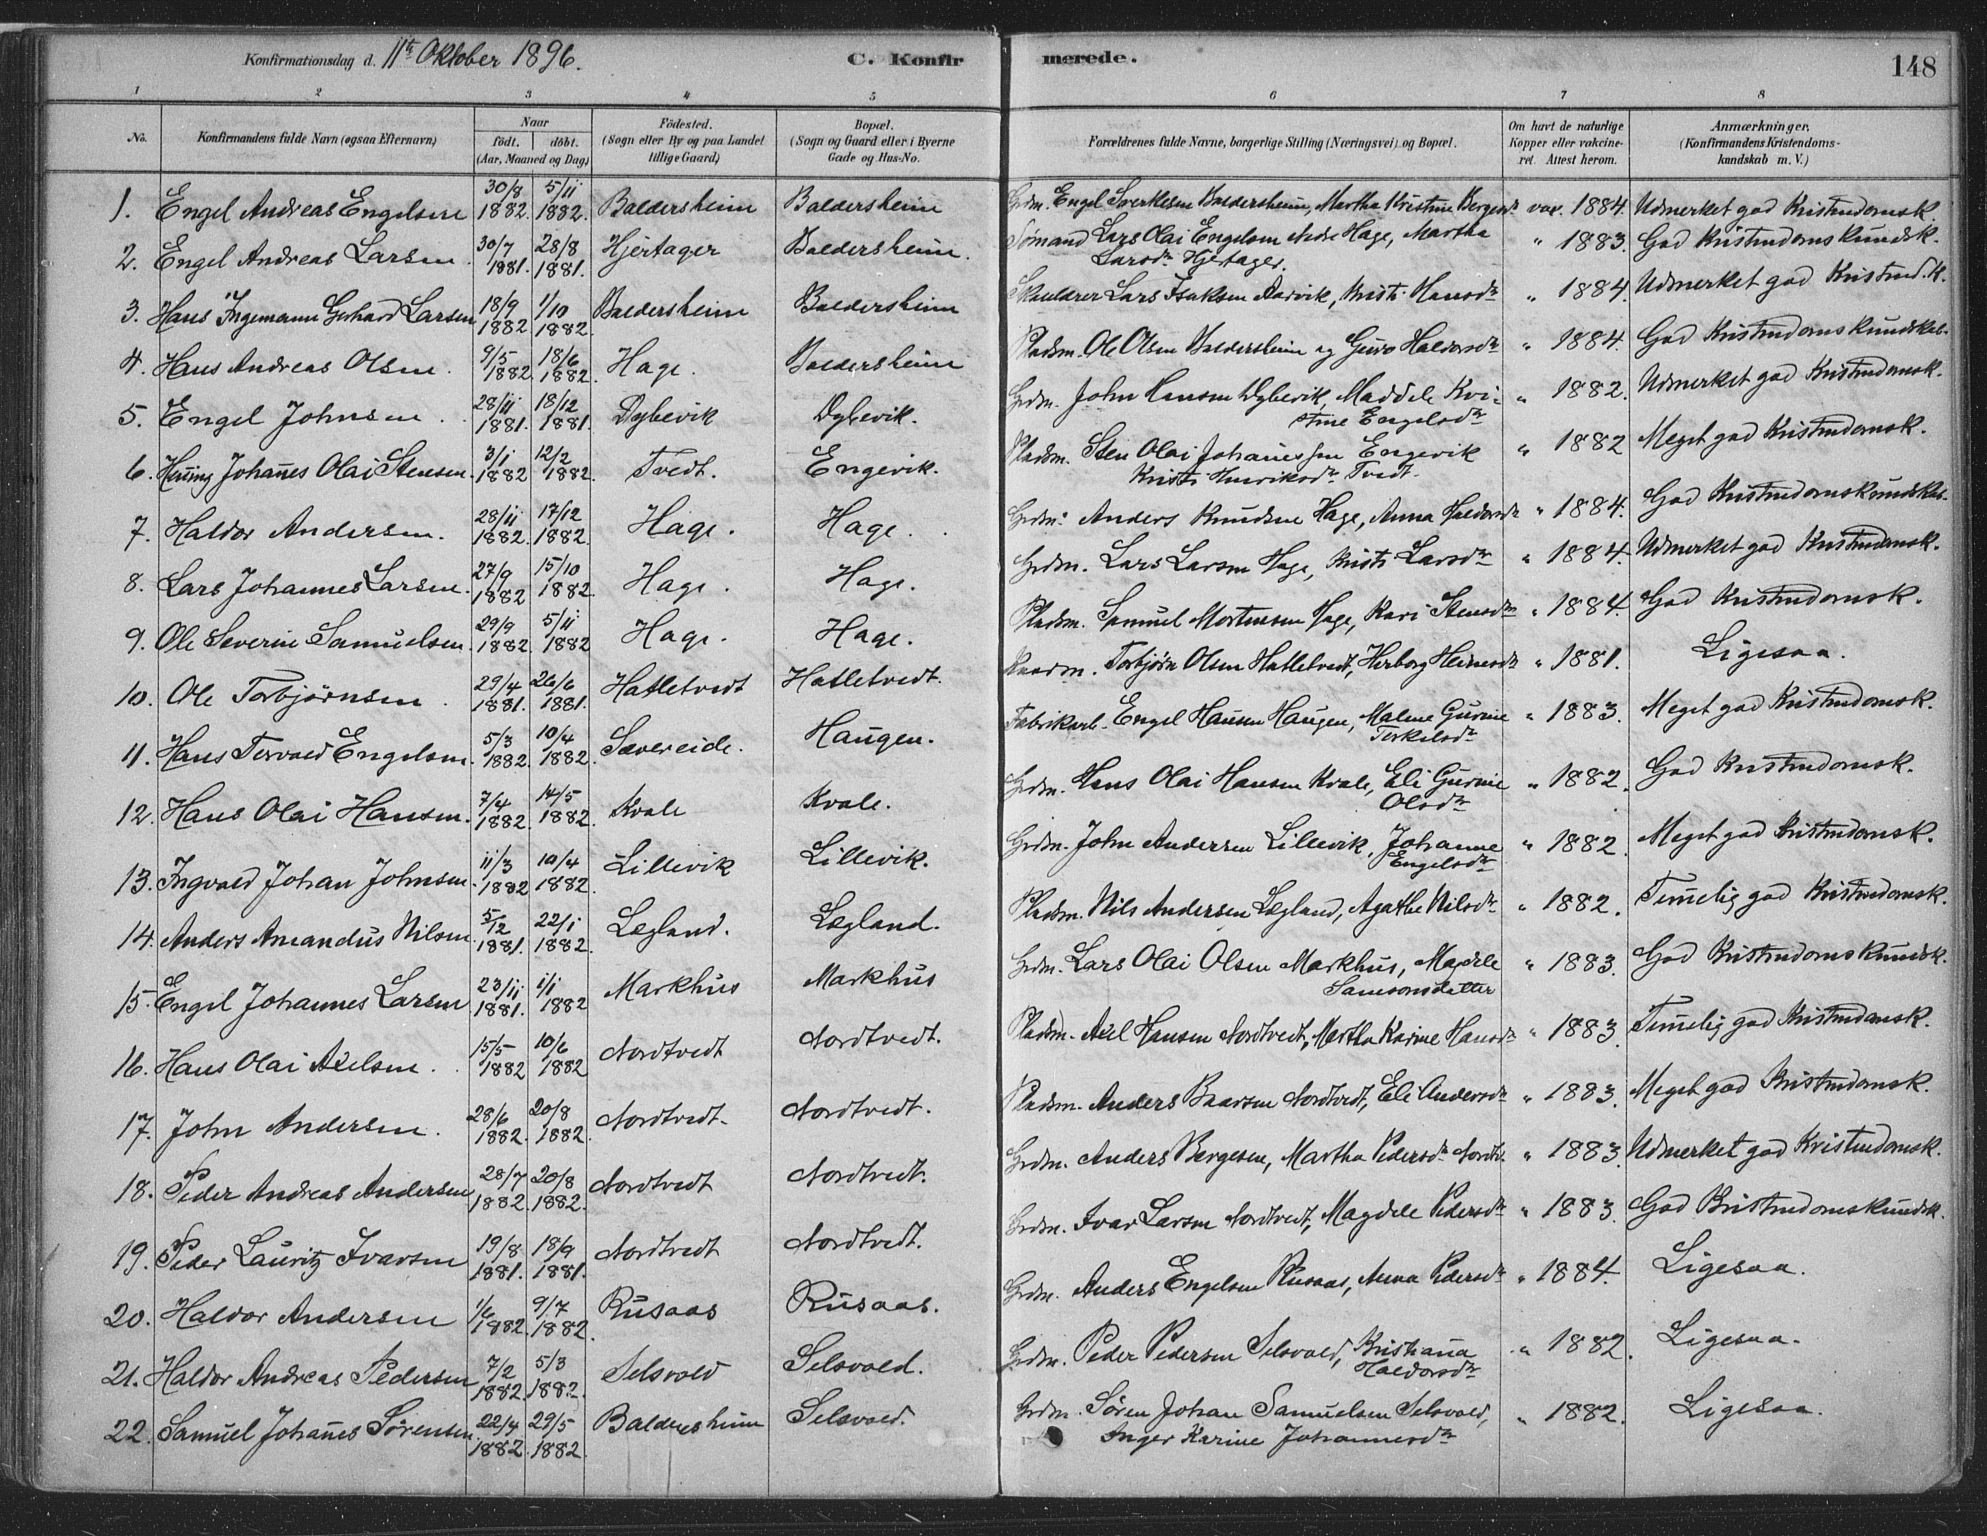 Konfirmationsdag d. 11te Oktober 1896. C. Konfirmerede. 148
1 2 3 4 5 6 7 8
No. Konfirmandens fulde Navn (ogsaa Efternavn) Naar født. døbt. (Aar, Maaned og Dag) Fødested. (Sogn eller By og paa Landet tillige Gaard) Bopæl. (Sogn og Gaard eller i Byerne Gade og Hus-No. Forældrenes fulde Navne, borgerlige Stilling (Næringsvei) og Bopæl. Om havt de naturlige Kopper eller vakcineret. Attest herom. Anmærkninger. (Konfirmandens Kristendomskundskab m. V.)
1. Engel Andreas Engelsen 30/8 1882. 5/11 1882. Baldersheim Baldersheim Grdm. Engel Sverkelsen Baldersheim, Martha Kristine Bergesdr vax. 1884. Udmerket god Kristendomsk.
2. Engel Andreas Larsen 30/7 1881. 28/8 1881. Hjertager Baldersheim. Sømand Lars Olai Engelsen Nedre Hage, Martha Larsdr Hjertager. " 1883. God Kristendomskundsk.
3. Hans Ingemann Gerhard Larsen 18/9 1882 1/10 1882. Baldersheim Baldersheim Lars Isaksen Aarvik, Kristi Hansdr " 1884. Udmerket god Kristend.k.
4. Hans Andreas Olsen. 9/5 1882. 18/6 1882. Hage. Baldersheim Pladsm. Ole Olsen Baldersheim og Guro Haldorsdr " 1884. God Kristendomskundskab.
5. Engel Johnsen. 28/11 1881. 18/12 1881. Dybevik Dybevik. Grdm. John Hansen Dybevik, Maddele Kristine Engelsdr " 1882. Udmerket god Kristendomsk.
6. Henning Johañes Olai Stensen. 3/1 1882 12/2 1882. Tvedt. Engevik. Pladsm. Sten Olai Johanessen Engevik Kristi Henriksdr Tvedt. " 1882 Meget god Kristendomsk.
7. Haldor Andersen. 28/11 1882. 17/12 1882. Hage. Hage. Grdm. Anders Knudsen Hage, Anna Haldorsdr " 1884. God Kristendomskundskab.
8. Lars Johannes Larsen. 27/9 1882 15/10 1882. Hage. Hage. Grdm. Lars Larsen Hage, Kristi Larsdr " 1884. Udmerket god Kristendomsk.
9. Ole Severin Samuelsen. 29/9 1882 5/11 1882. Hage. Hage. Pladsm. Samuel Mortensen Hage, Kari Stensdr " 1884. God Kristendomsk.
10. Ole Torbjørnsen. 29/4 1881. 26/6 1881. Hatletvedt Hatletvedt. Torbjørn Olsen Hatletvedt, Herborg " 1881. Ligesaa.
11. Hans Torvald Engelsen. 5/3 1882. 10/4 1882. Sævereide. Haugen. Fabrikarb. Engel Hansen Haugen, Malene Gurine Terkelsdr " 1883. Meget god Kristendomsk.
12. Hans Olai Hansen. 7/4 1882. 14/5 1882. Kvale Kvale. Grdm. Hans Olai Hansen Kvale, Eli Gurine Olsdr " 1882. God Kristendomsk.
13. Ingvald Johan Johnsen 11/3 1882 10/4 1882. Lillevik Lillevik. Grdm. John Andersen Lillevik, Johanne Engelsdr " 1882. Meget god Kristendomsk.
14. Anders Amandus Nilsen. 5/12 1881. 22/1 1882. Lægland. Lægland. Pladsm. Nils Andersen Lægland, Agathe Nilsdr " 1882. Temelig god Kristendomsk.
15. Engel Johannes Larsen 23/11 1881. 1/1 1882 Markhus Markhus Grdm. Lars Olai Olsen Markhus, Magdele Samsonsdatter " 1883. God Kristendomskundsk.
16. Hans Olai Axelsen. 15/5 1882 10/6 1882 Nordtvedt Nordtvedt. Pladsm. Axel Hansen Nordtvedt, Martha Karine Hansdr " 1883. Temelig god Kristendomsk.
17. John Andersen. 28/6 1882. 20/8 1882. Nordtvedt. Nordtvedt. Pladsm. Anders Baarsen Nordtvedt, Eli Andersdr " 1883. Meget god Kristendomsk.
18. Peder Andreas Andersen 28/7 1882. 20/8 1882. Nordtvedt Nordtvedt. Grdm. Anders Bergesen, Martha Pedersdr Nordtv. " 1883. Udmerket god Kristendomsk.
19. Peder Lauritz Ivarsen 19/8 1881. 18/9 1881. Nordtvedt Nordtvedt. Grdm. Ivar Larsen Nordtvedt, Magdele Pedersdr " 1883. God Kristendomskundsk.
20. Haldor Andersen 1/6 1882. 9/7 1882. Rusaas Rusaas. Grdm. Anders Engelsen Rusaas, Anna Pedersdr " 1884. Ligesaa.
21. Haldor Andreas Pedersen 7/2 1882. 5/3 1882. Selsvold Selsvold. Grdm. Peder Pedersen Selsvold, Kristiana Haldorsdr " 1882. Ligesaa.
22. Samuel Johañes Sørensen. 22/4 1882. 29/5 1882 Baldersheim Selsvold. Grdm. Søren Johan Samuelsen Selsvold, Inger Karine Johannesdr " 1882. Ligesaa.